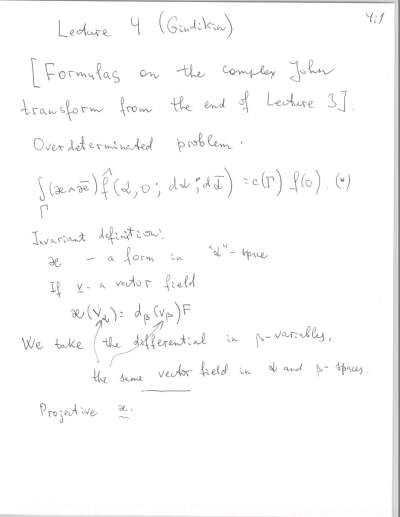 4:1
Lecture 4 (Gindikin)
[Formulas on the complex John
transform from the end of Lecture 3].
Overdeterminated problem.
∫_Γ (ϰ∧ϰ̄) f̂(α, 0; dα; dᾱ) = c(Γ) f(0). (*)
Invariant definition:
ϰ - a form in "α"-space
If v - a vector field
ϰ(v_α) = d_β(v_β)F
We take the differential in β-variables,
the same vector field in α and β-spaces.
Projective ϰ.